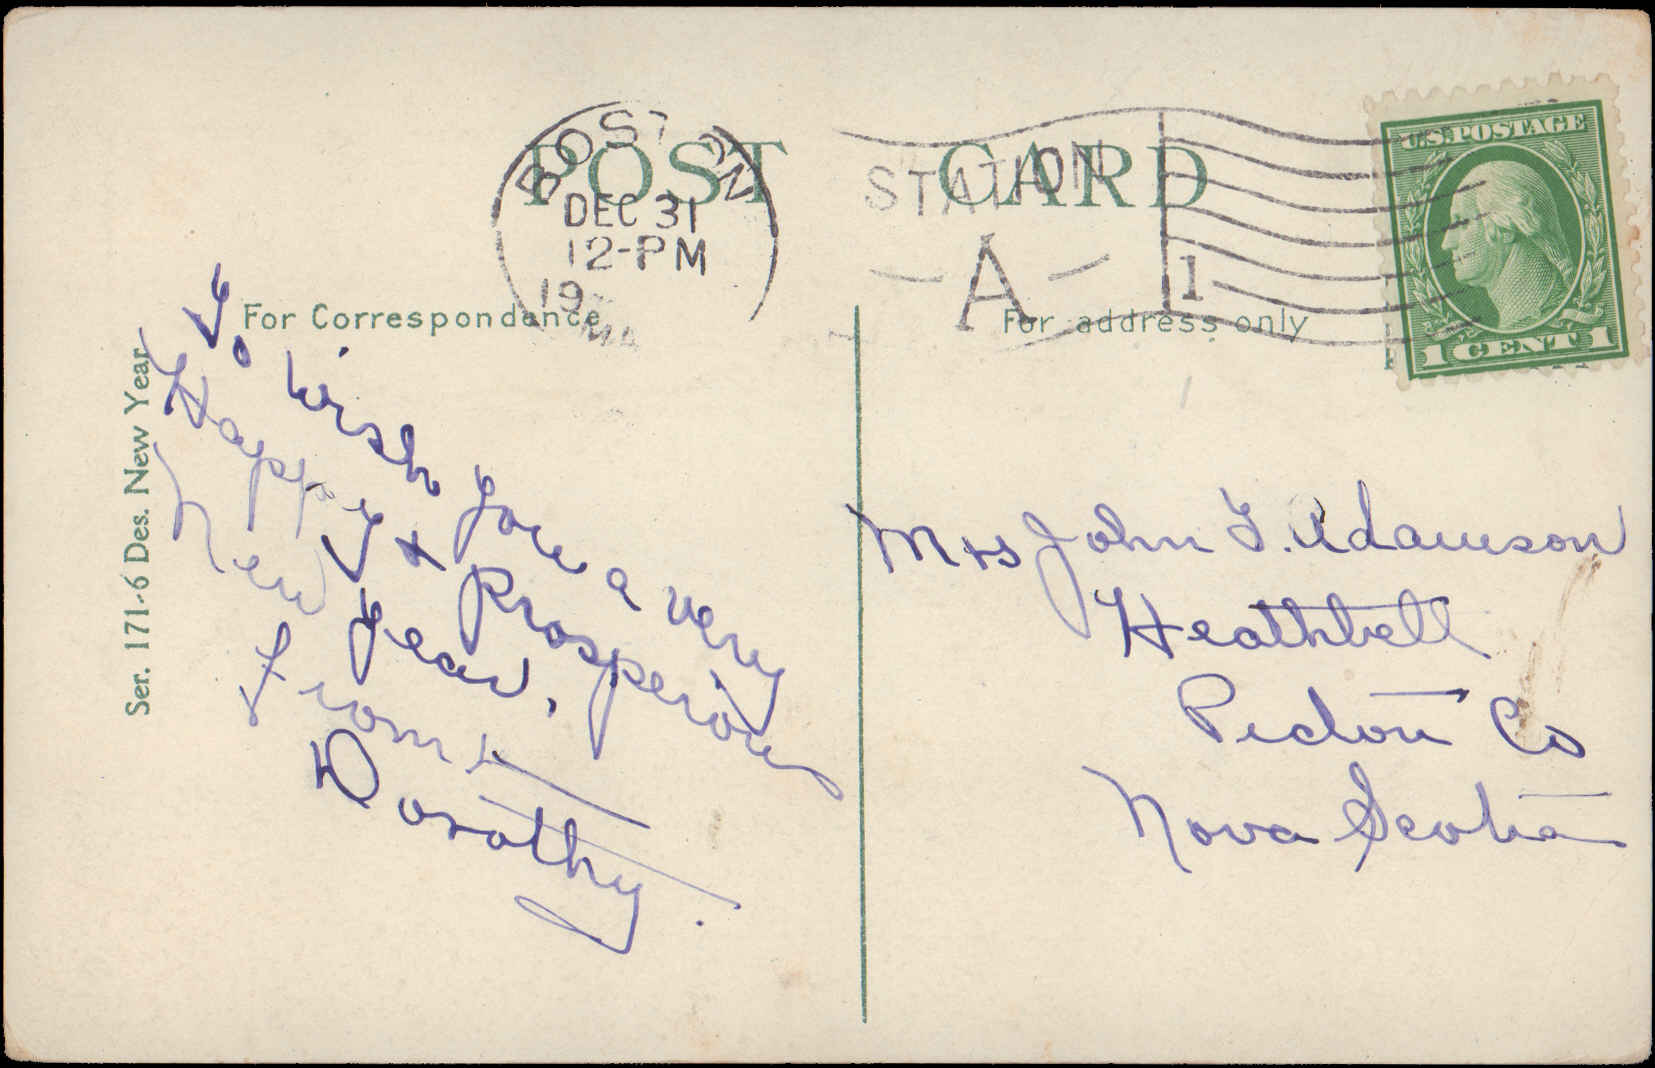 POST CARD
BOSTON
DEC 31
12-PM
19
MA
STATION
A
1
U.S. POSTAGE
1 CENT 1
For Correspondence
For address only
Ser. 171-6 Des. New Year
To wish you a very
Happy & Prosperous
New Year.
From
Dorothy.
Mrs John F. Adamson
Heathbell
Pictou Co
Nova Scotia